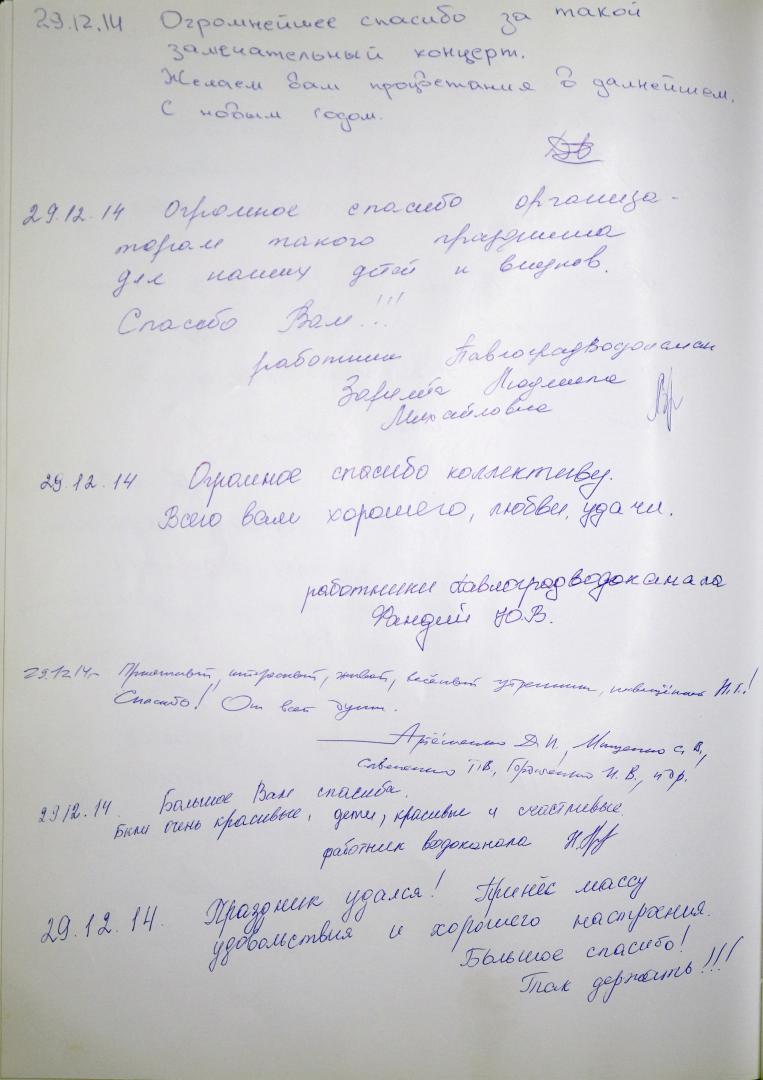 29.12.14 Огромнейшее спасибо за такой
замечательный концерт.
Желаем вам процветания в далнейшем.
С новым годом.
29.12.14 Огромное спасибо организа-
торам такого праздника
для наших детей и внуков.
Спасибо Вам!!!
работник Павлоградводоканал
Людмила
Михайловна
29.12.14 Огромное спасибо коллективу.
Всего вам хорошего, любви, удачи.
работники Павлоградводоканала
Фандий Ю.В.
29.12.14г Приятный, интересный, живой, весёлый утренник, посвящённый Н.Г.!
Спасибо! От всей души.
Артёменко Д.И., Мищенко С.В.,
Савченко Т.В., И.В., и др.!
29.12.14. Большое Вам спасибо.
Были очень красивые, дети, красивые и счастливые.
работник водоканала
29.12.14. Праздник удался! Принёс массу
удовольствия и хорошего настроения.
Большое спасибо!
Так держать!!!